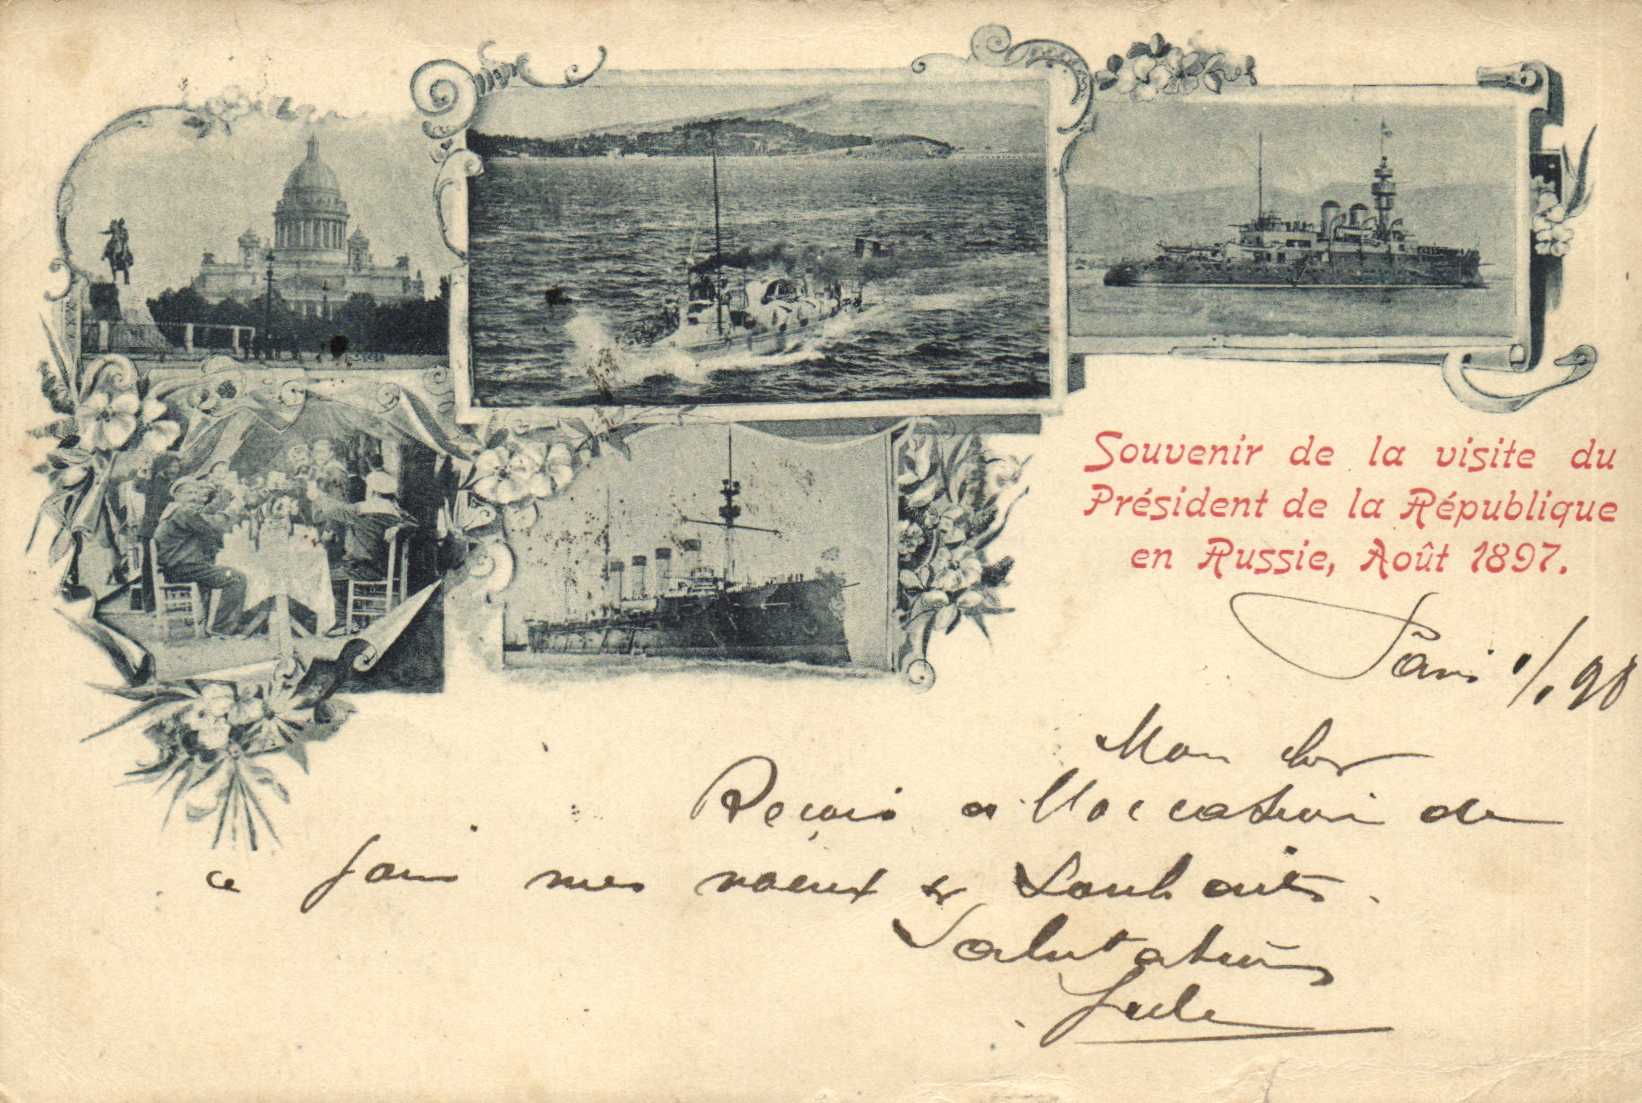 Souvenir de la visite du
Président de la République
en Russie, Août 1897.
Paris 1/1 98
Mon cher
Reçois à l'occasion de
ce jour mes voeux & Souhaits.
Salutations
Jules